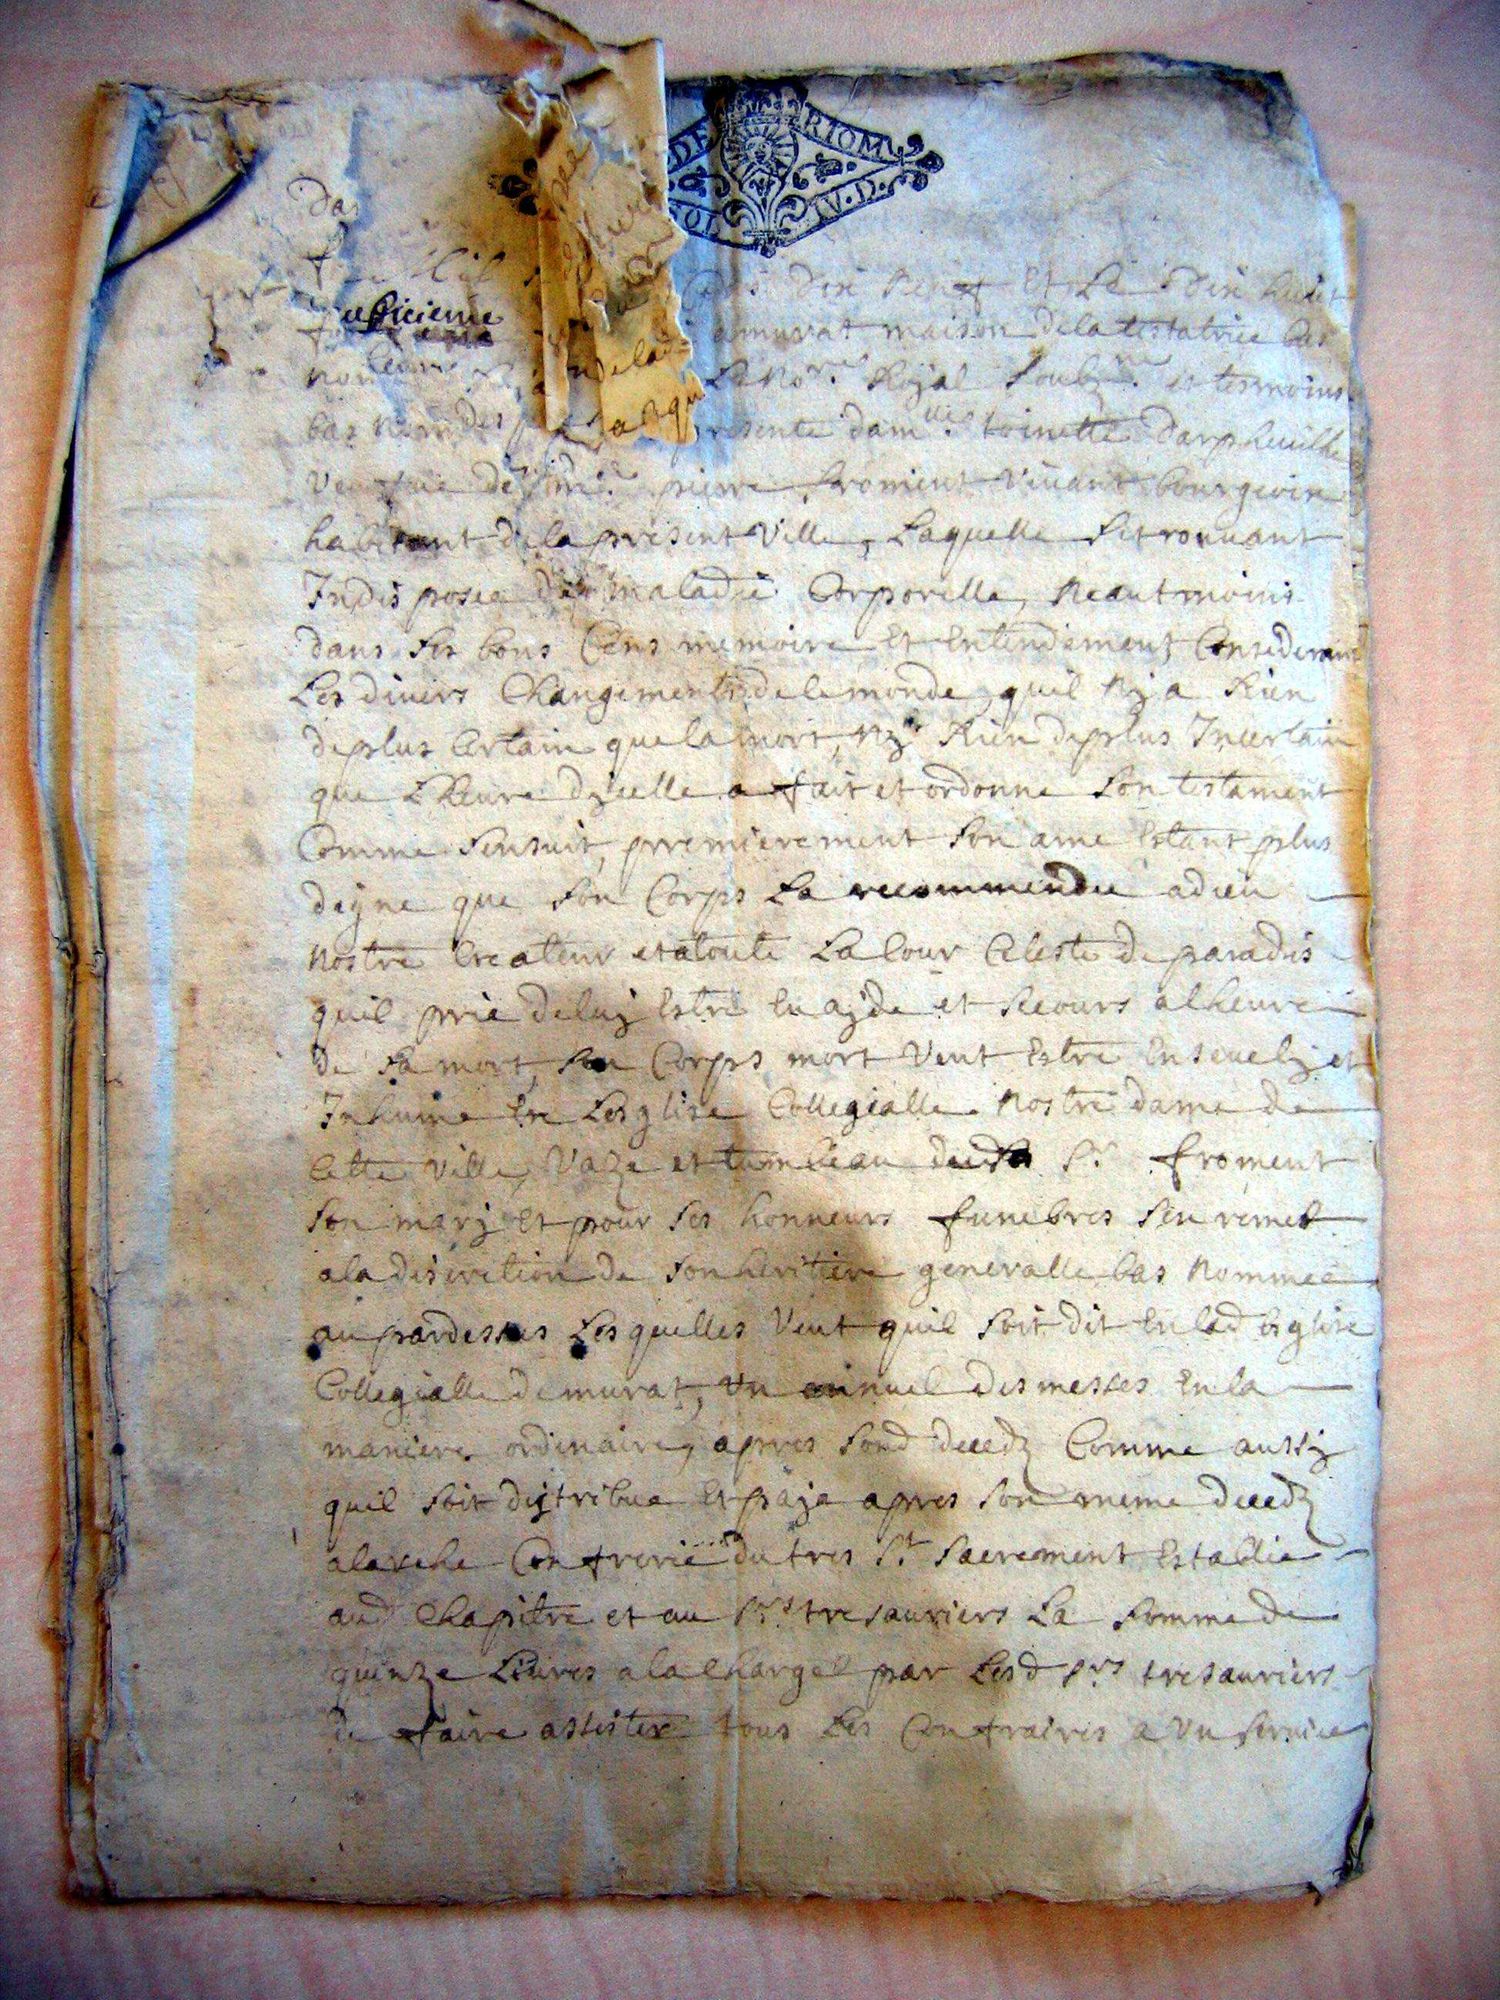 DE RIOM
SOL IV. D.
Mil Cens dix neuf Et Le dix huict
a murat maison dela testatrice bas
Le No.re Royal soubz.né et tesmoins
bas nommés presente dam.lle toinette Darpheuille
Veusue de pierre froment Viuant bourgeois
habitant dela present Ville, Laquelle se trouuant
Indisposee de maladie Corporelle, Neautmoins
dans ses bons Cens memoire Et Entendement Considerant
Les diuers Changements de le monde, quil Ny a Rien
de plus Certain que la mort, Ny Rien de plus Incertain
que L'heure dycelle a fait et ordonne son testament
Comme sensuit, premierement son ame Estant plus
digne que son Corps La recommendee adieu
Nostre Createur et atoute La Cour Celeste de paradis
quil prie deluy Estre En ayde et secours alheure
de sa mort, son Corps mort Veut Estre Enseuely et
Inhume En Lesglise Collegialle Nostre dame de
Cette Ville, Vaze et tumbeau dud Sr. froment
son mary Et pour ses honneurs funebres sen remet
ala discretion de son heritiere generalle bas Nommee
au pardessus Lesquelles Veut quil soit dit En lad Esglise
Collegialle de murat, Un annuel des messes En la
maniere ordinaire, apres sond deced Comme aussy
quil soit distribue Et paye apres son meme deced
ala Confrerie du tres St. sacrement Establie
aud Chapitre et au Srs tresauriers La somme de
quinze Liures a la Charge par Lesd Srs tresauriers
de faire assister tous Les Confraires a Un seruice